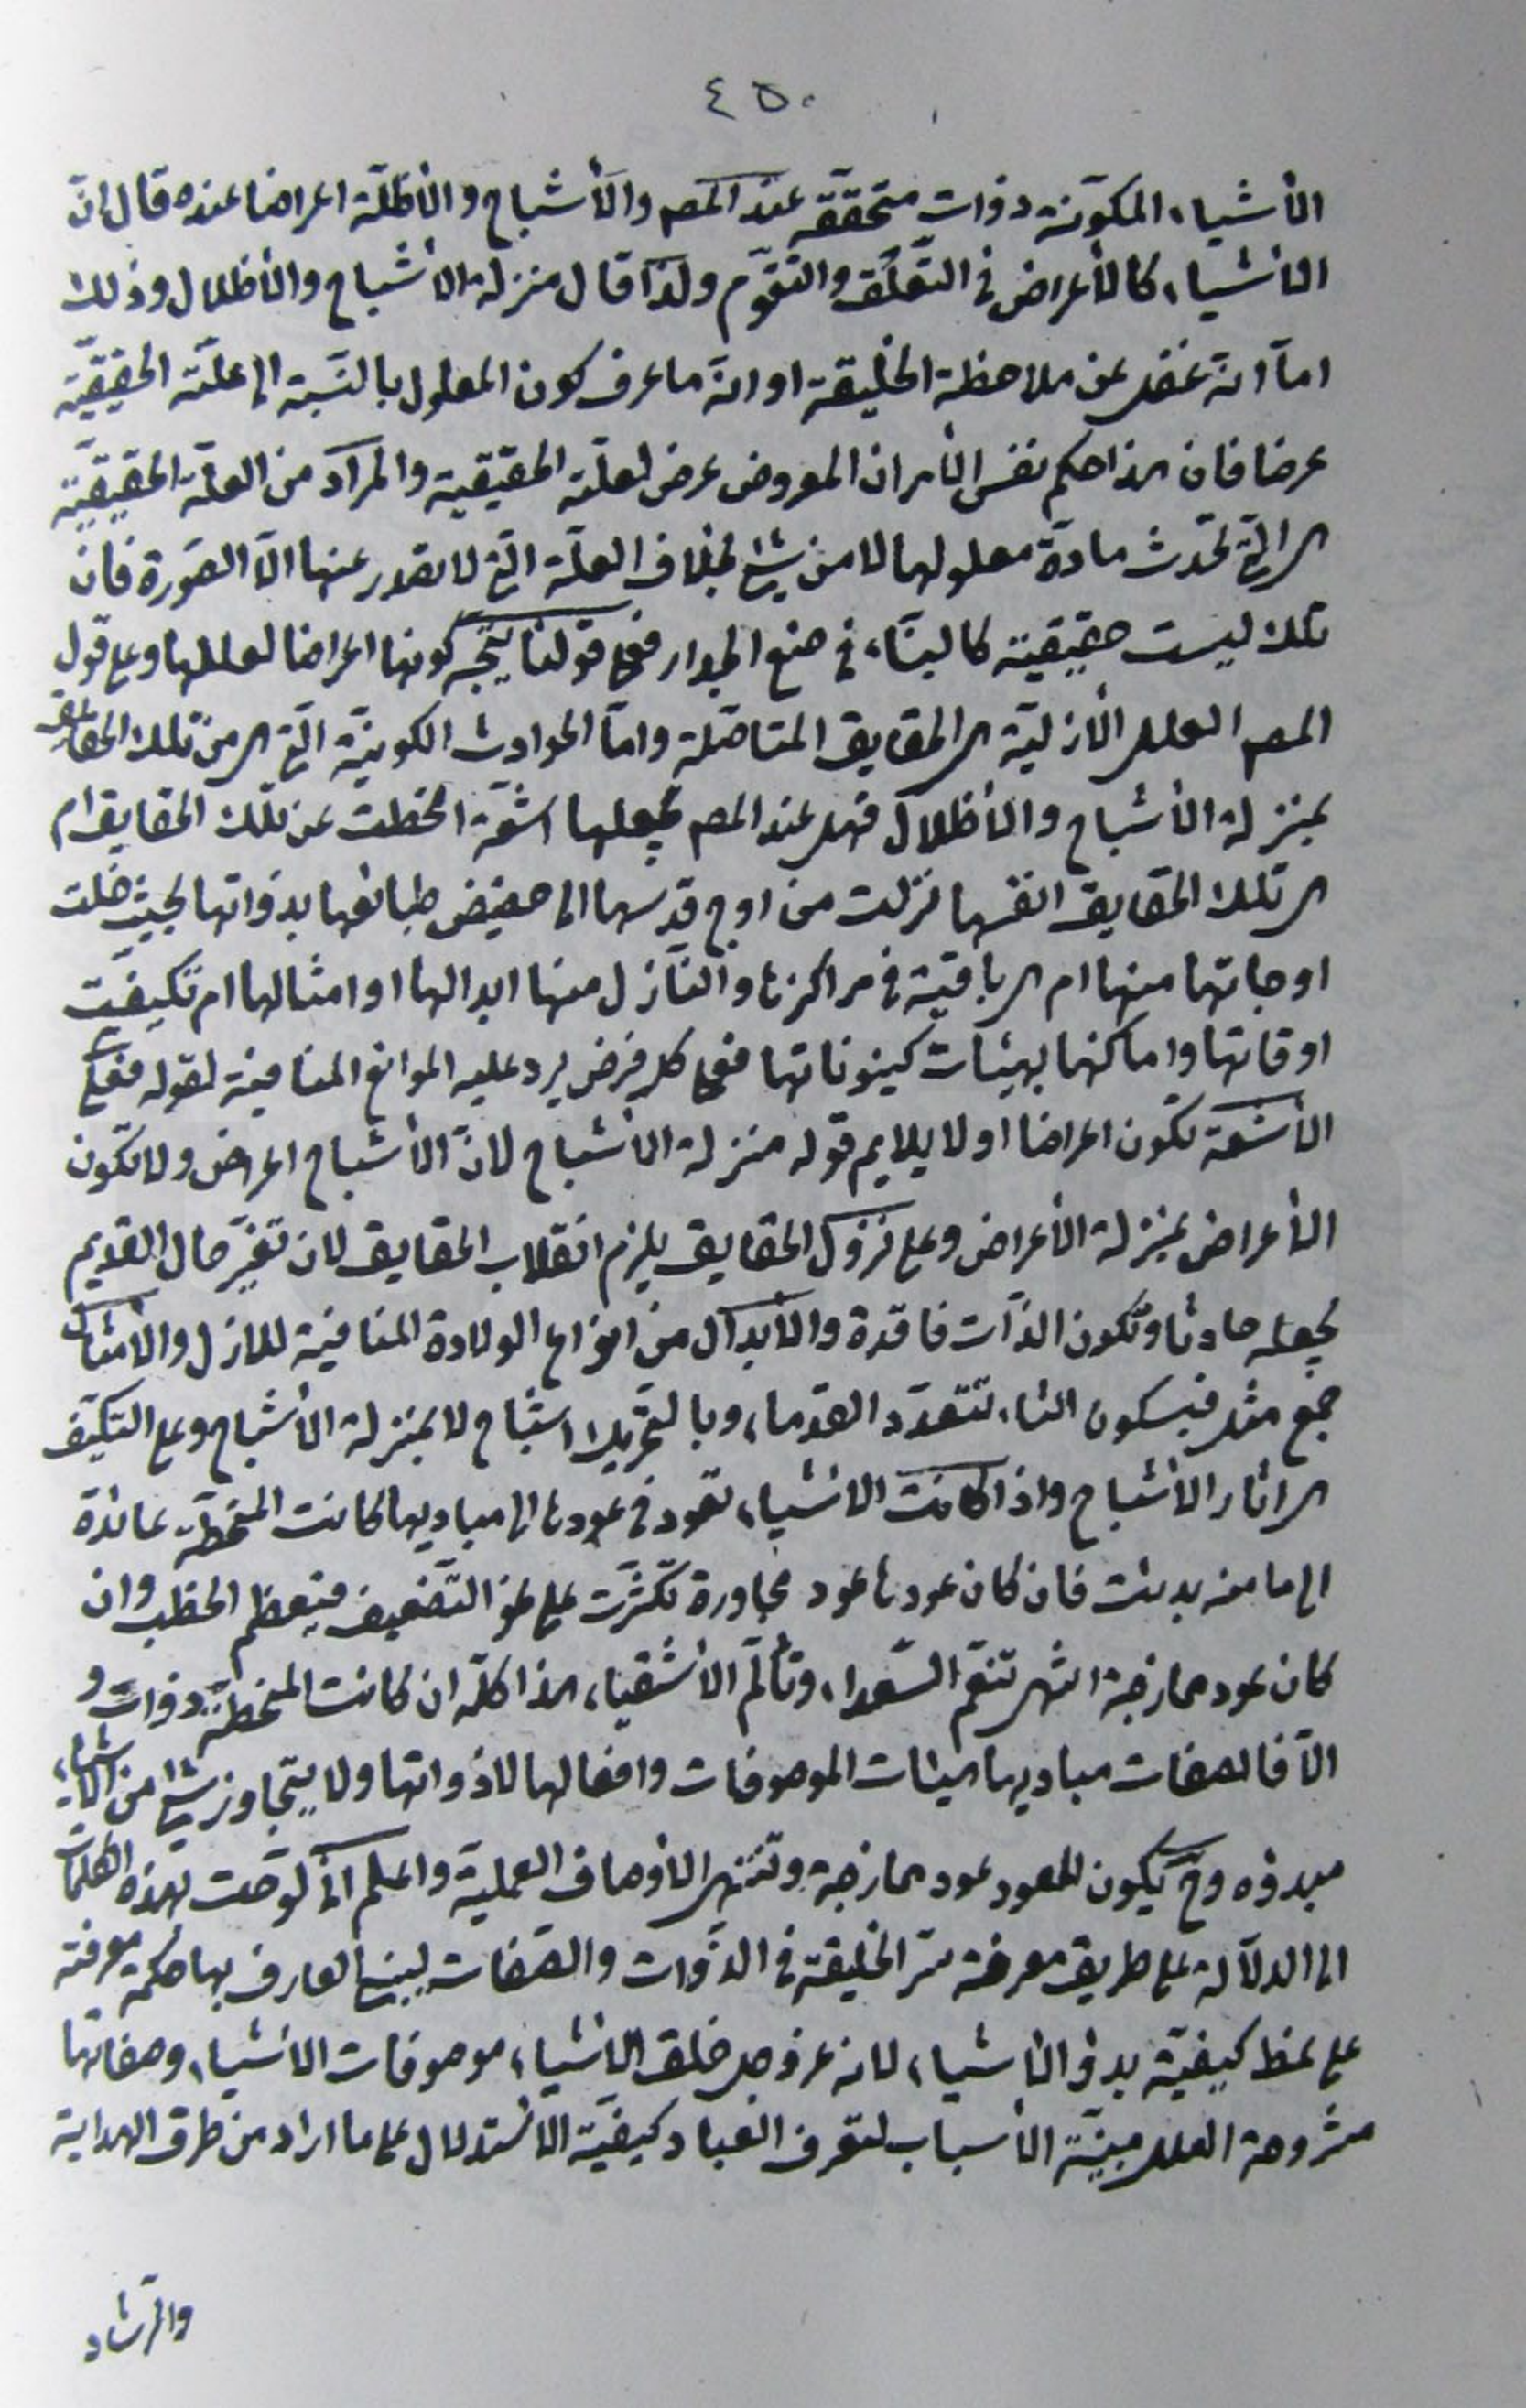 ٤٥٠
الأشياء المكوّنة ذوات متحققة عند المصه والأشباح والأظلّة اعراضا عنده قال انّ
الأشياء كالأعراض فى التعلّق والتقوّم ولذا قال منزلة الأشباح والأظلال وذلك
امّا انّه غفل عن ملاحظة الخليقة او انّه ما عرف كون المعلول بالنّسبة الى علّته الحقيقيّة
عرضا فان هذا حكم نفس الأمر ان المعروض عرض لعلّته الحقيقية والمراد من العلّة الحقيقيّة
هى الّتى تحدث مادّة معلولها لا من شئ بخلاف العلّة الّتى لا تصدر عنها الّا الصّورة فانّ
تلك ليست حقيقية كالبنّاء فى صنع الجدار فعلى قولنا يتّجه كونها اعراضا لعللها وعلى قول
المصه العلل الأزليّة هى الحقايق المتاصّلة وامّا الحوادث الكونيّة الّتى هى من تلك الحقايق
بمنزلة الأشباح والأظلال فهل عند المصه بجعلها اشعّة انحطت عن تلك الحقايق ام
هى تلك الحقايق انفسها نزلت من اوج قدسها الى حضيض طبائعها بذواتها بحيث خلت
اوجاتها منها ام هى باقية فى مراكزها والنّازل منها ابدالها او امثالها ام تكيفت
اوقاتها واماكنها بهيئات كينوناتها فعلى كل فرض يرد عليه الموانع المنافية لقوله فعلى
الأشعة تكون اعراضا او لا يلايم قوله منزلة الأشباح لانّ الأشباح اعراض ولا تكون
الأعراض بمنزلة الأعراض وعلى نزول الحقايق يلزم انقلاب الحقايق لان تغيّر حال القديم
يجعله حادثا وتكون الذّات فاقدة والأبدال من انواع الولادة المنافية للازل والأمثال
جمع مثل فبسكون الثاء تتعدّد القدماء وبالتحريك اشباح لا بمنزلة الأشباح وعلى التكيّف
هى اثار الأشباح واذا كانت الأشياء تعود فى عودها الى مباديها كانت المنحطّة عائدة
الى ما منه بدئت فان كان عودها عود مجاورة تكثّرت على نحو التّضعيف فيعظم الخطب وان
كان عود ممازجة انتهى تنعّم السّعداء وتألّم الأشقياء هذا كلّه ان كانت المنحطّة ذوات و
الّا فالصفات مباديها هيئات الموصوفات وافعالها لا ذواتها ولا يتجاوز شئ من الأشياء
مبدؤه وح يكون للعود عود ممازجة وتنتهى الأوصاف العملية واعلم انّى لوّحت بهذه الكلمات
الى الدلالة على طريق معرفة سرّ الخليقة فى الذّوات والصّفات ليبنى العارف بها حكمة معرفته
على نمط كيفيّة بدؤ الأشياء لانه عزّ وجل خلق الأشياء موصوفات الأشياء وصفاتها
مشروحة العلل مبيّنة الأسباب لتعرف العباد كيفيّة الأستدلال على ما اراد من طرق الهداية
والرّشاد